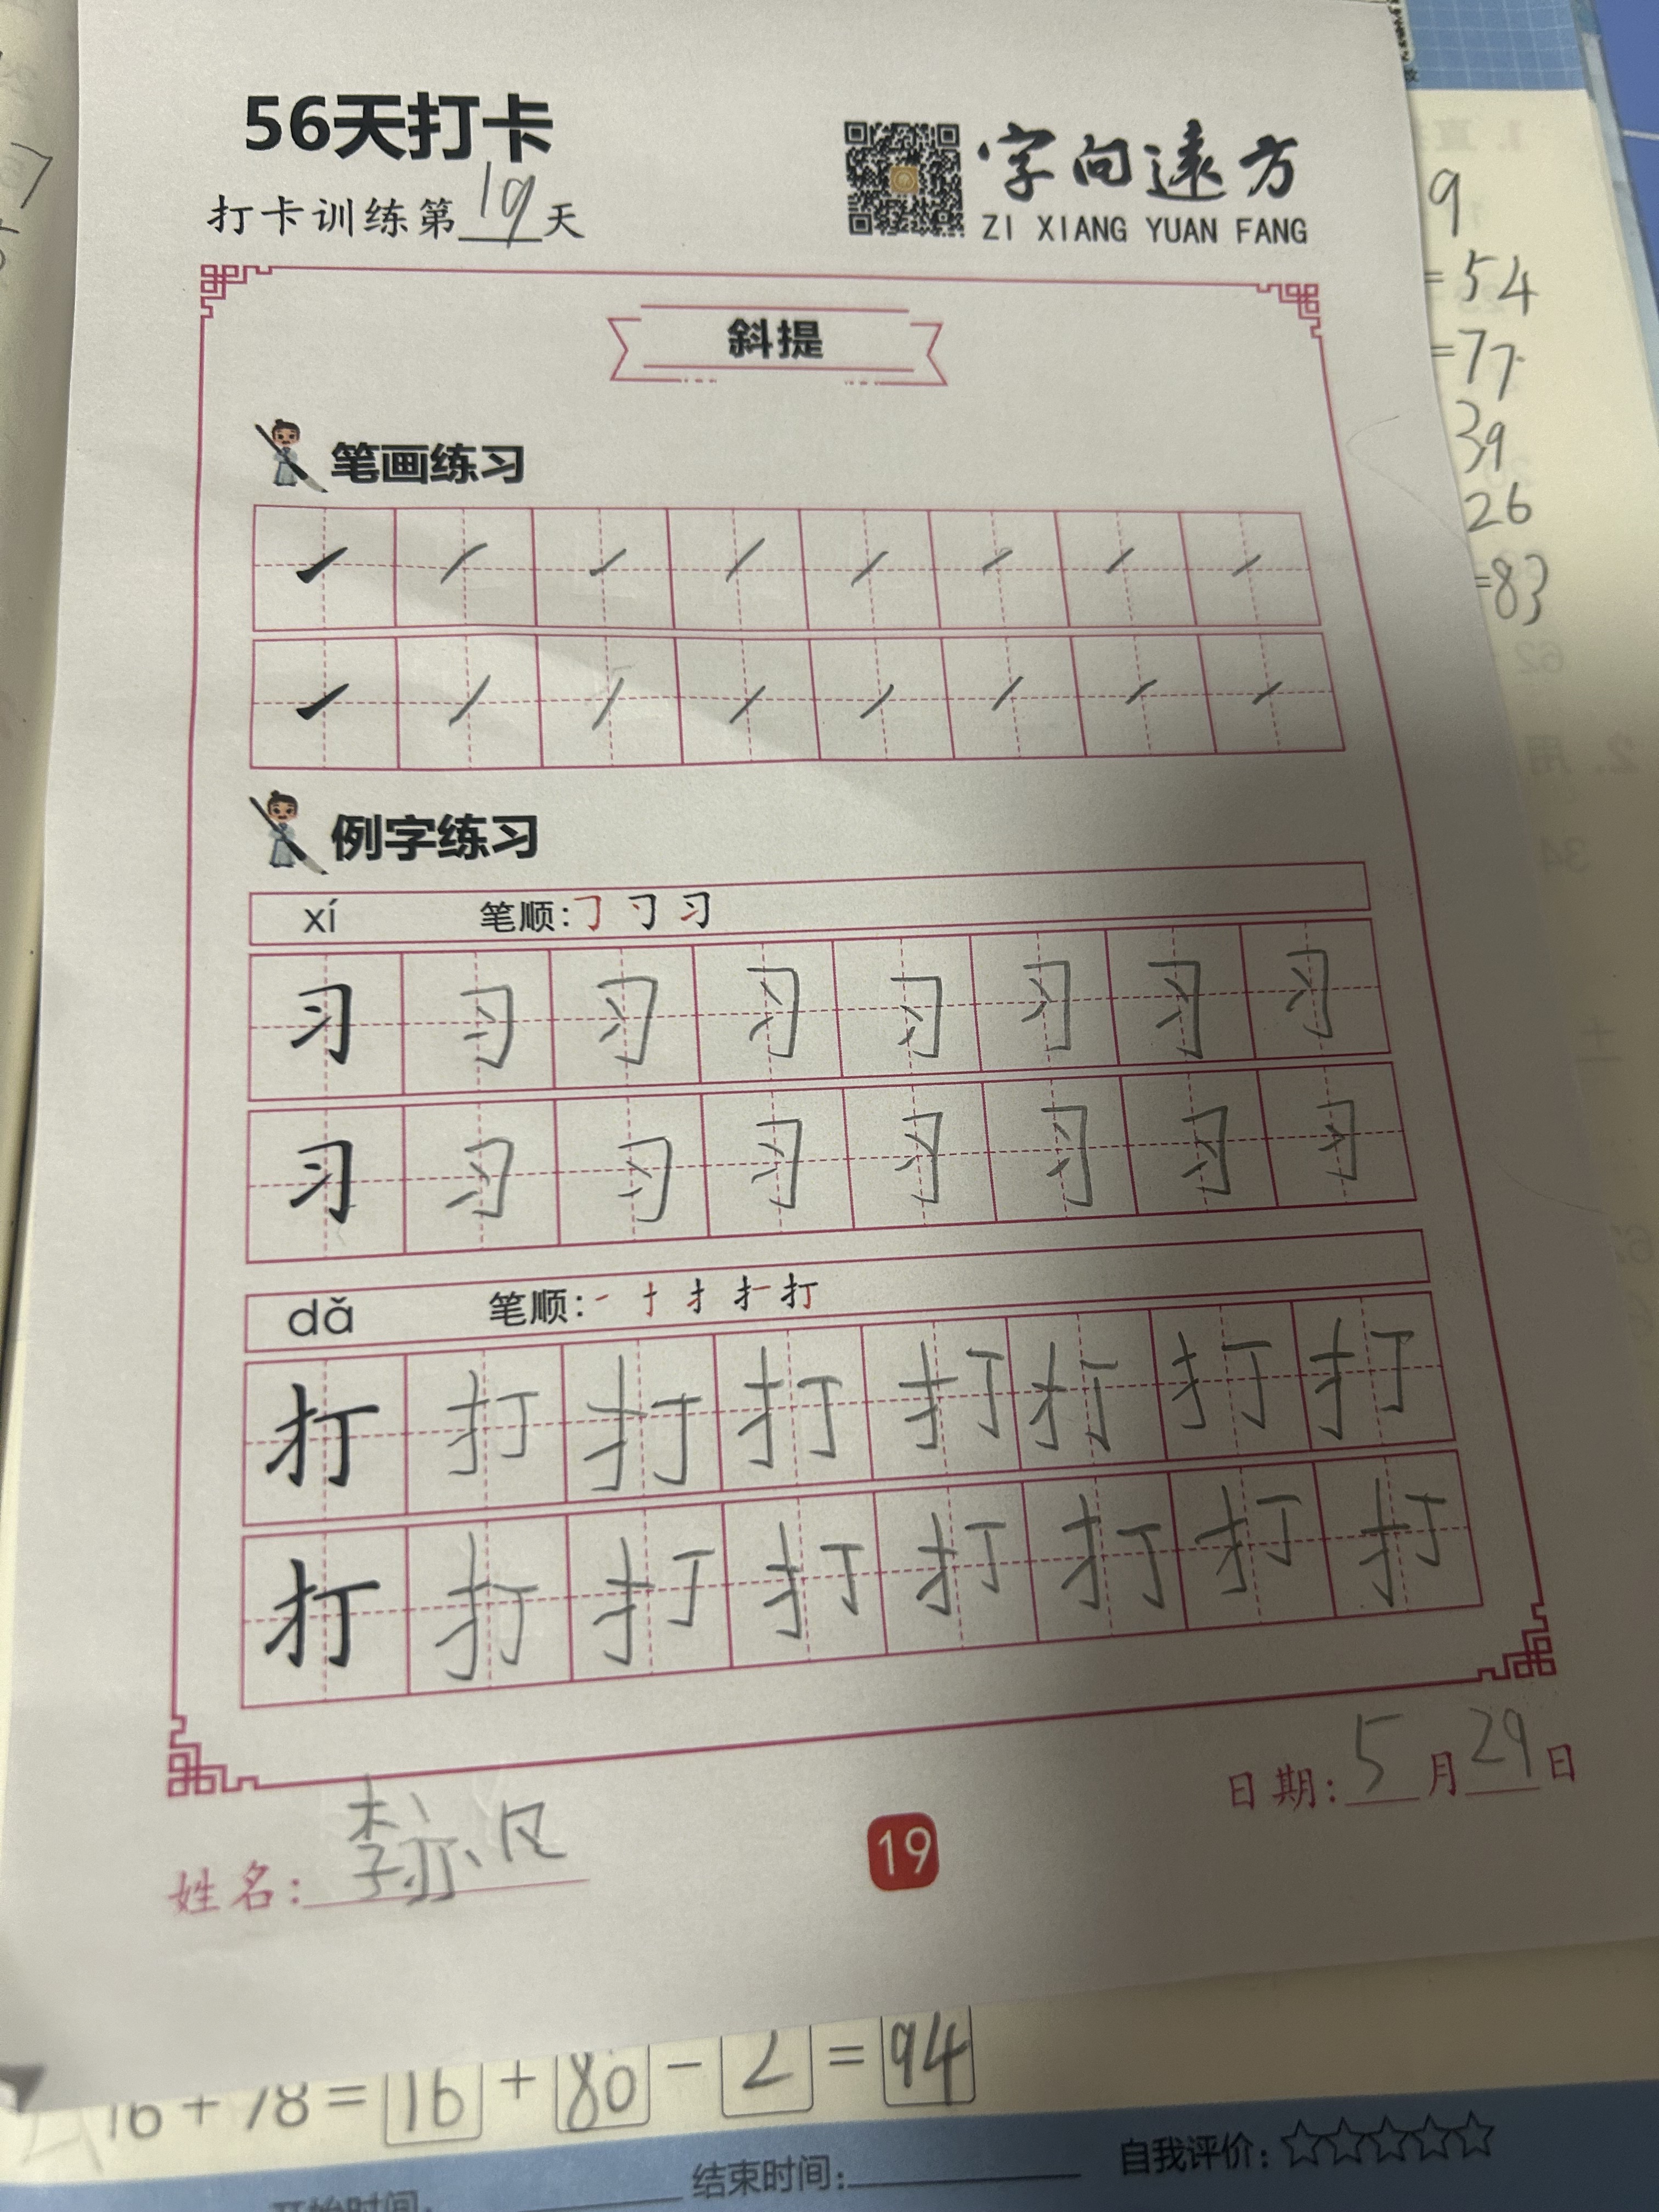 56天打卡
打卡训练第19天
字向远方
ZI XIANG YUAN FANG
斜提
笔画练习
例字练习
xí 笔顺:
习 习 习 习 习 习 习 习
习 习 习 习 习 习 习 习
dǎ 笔顺:
打 打 打 打 打 打 打 打
打 打 打 打 打 打 打 打
日期:5月29日
姓名:李亦凡
19
9
=54
=77
39
26
=83
16+78=16+80-2=94
结束时间:
自我评价:
开始时间: